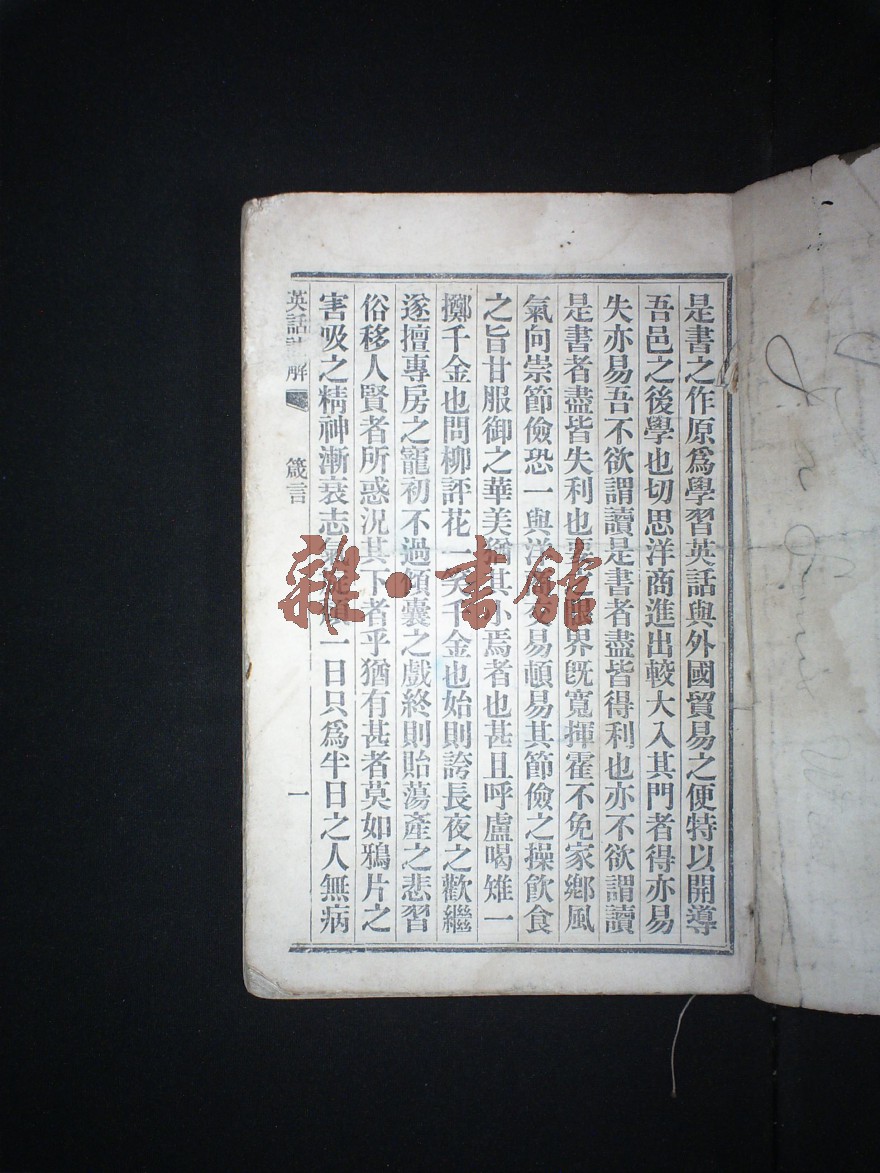 是書之作原爲學習英話與外國貿易之便特以開導
吾邑之後學也切思洋商進出較大入其門者得亦易
失亦易吾不欲謂讀是書者盡皆得利也亦不欲謂讀
是書者盡皆失利也眼界旣寬揮霍不免家鄉風
氣向崇節儉恐一與洋交易頓易其節儉之操飲食
之旨甘服御之華美猶其小焉者也甚且呼盧喝雉一
擲千金也問柳評花一笑千金也始則誇長夜之歡繼
遂擅專房之寵初不過傾囊之戲終則貽蕩產之悲習
俗移人賢者所惑況其下者乎猶有甚者莫如鴉片之
害吸之精神漸衰志氣一日只爲半日之人無病
英話解
箴言
一
雜·書館